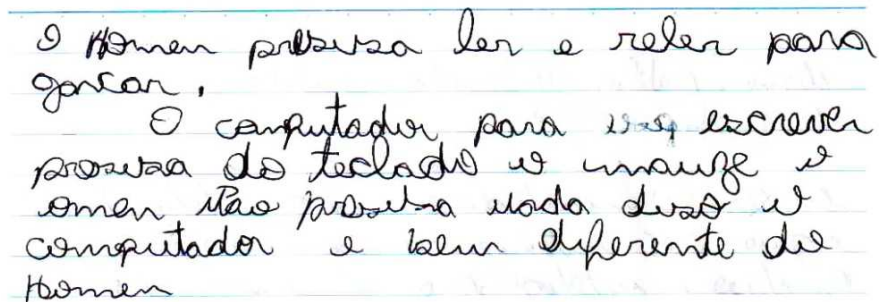 O Homen presisa ler e reler para
gavar.
O computador para escrever
presisa do teclado e mauze o
omen não presisa nada diso o
computador e bem diferente do
Homen